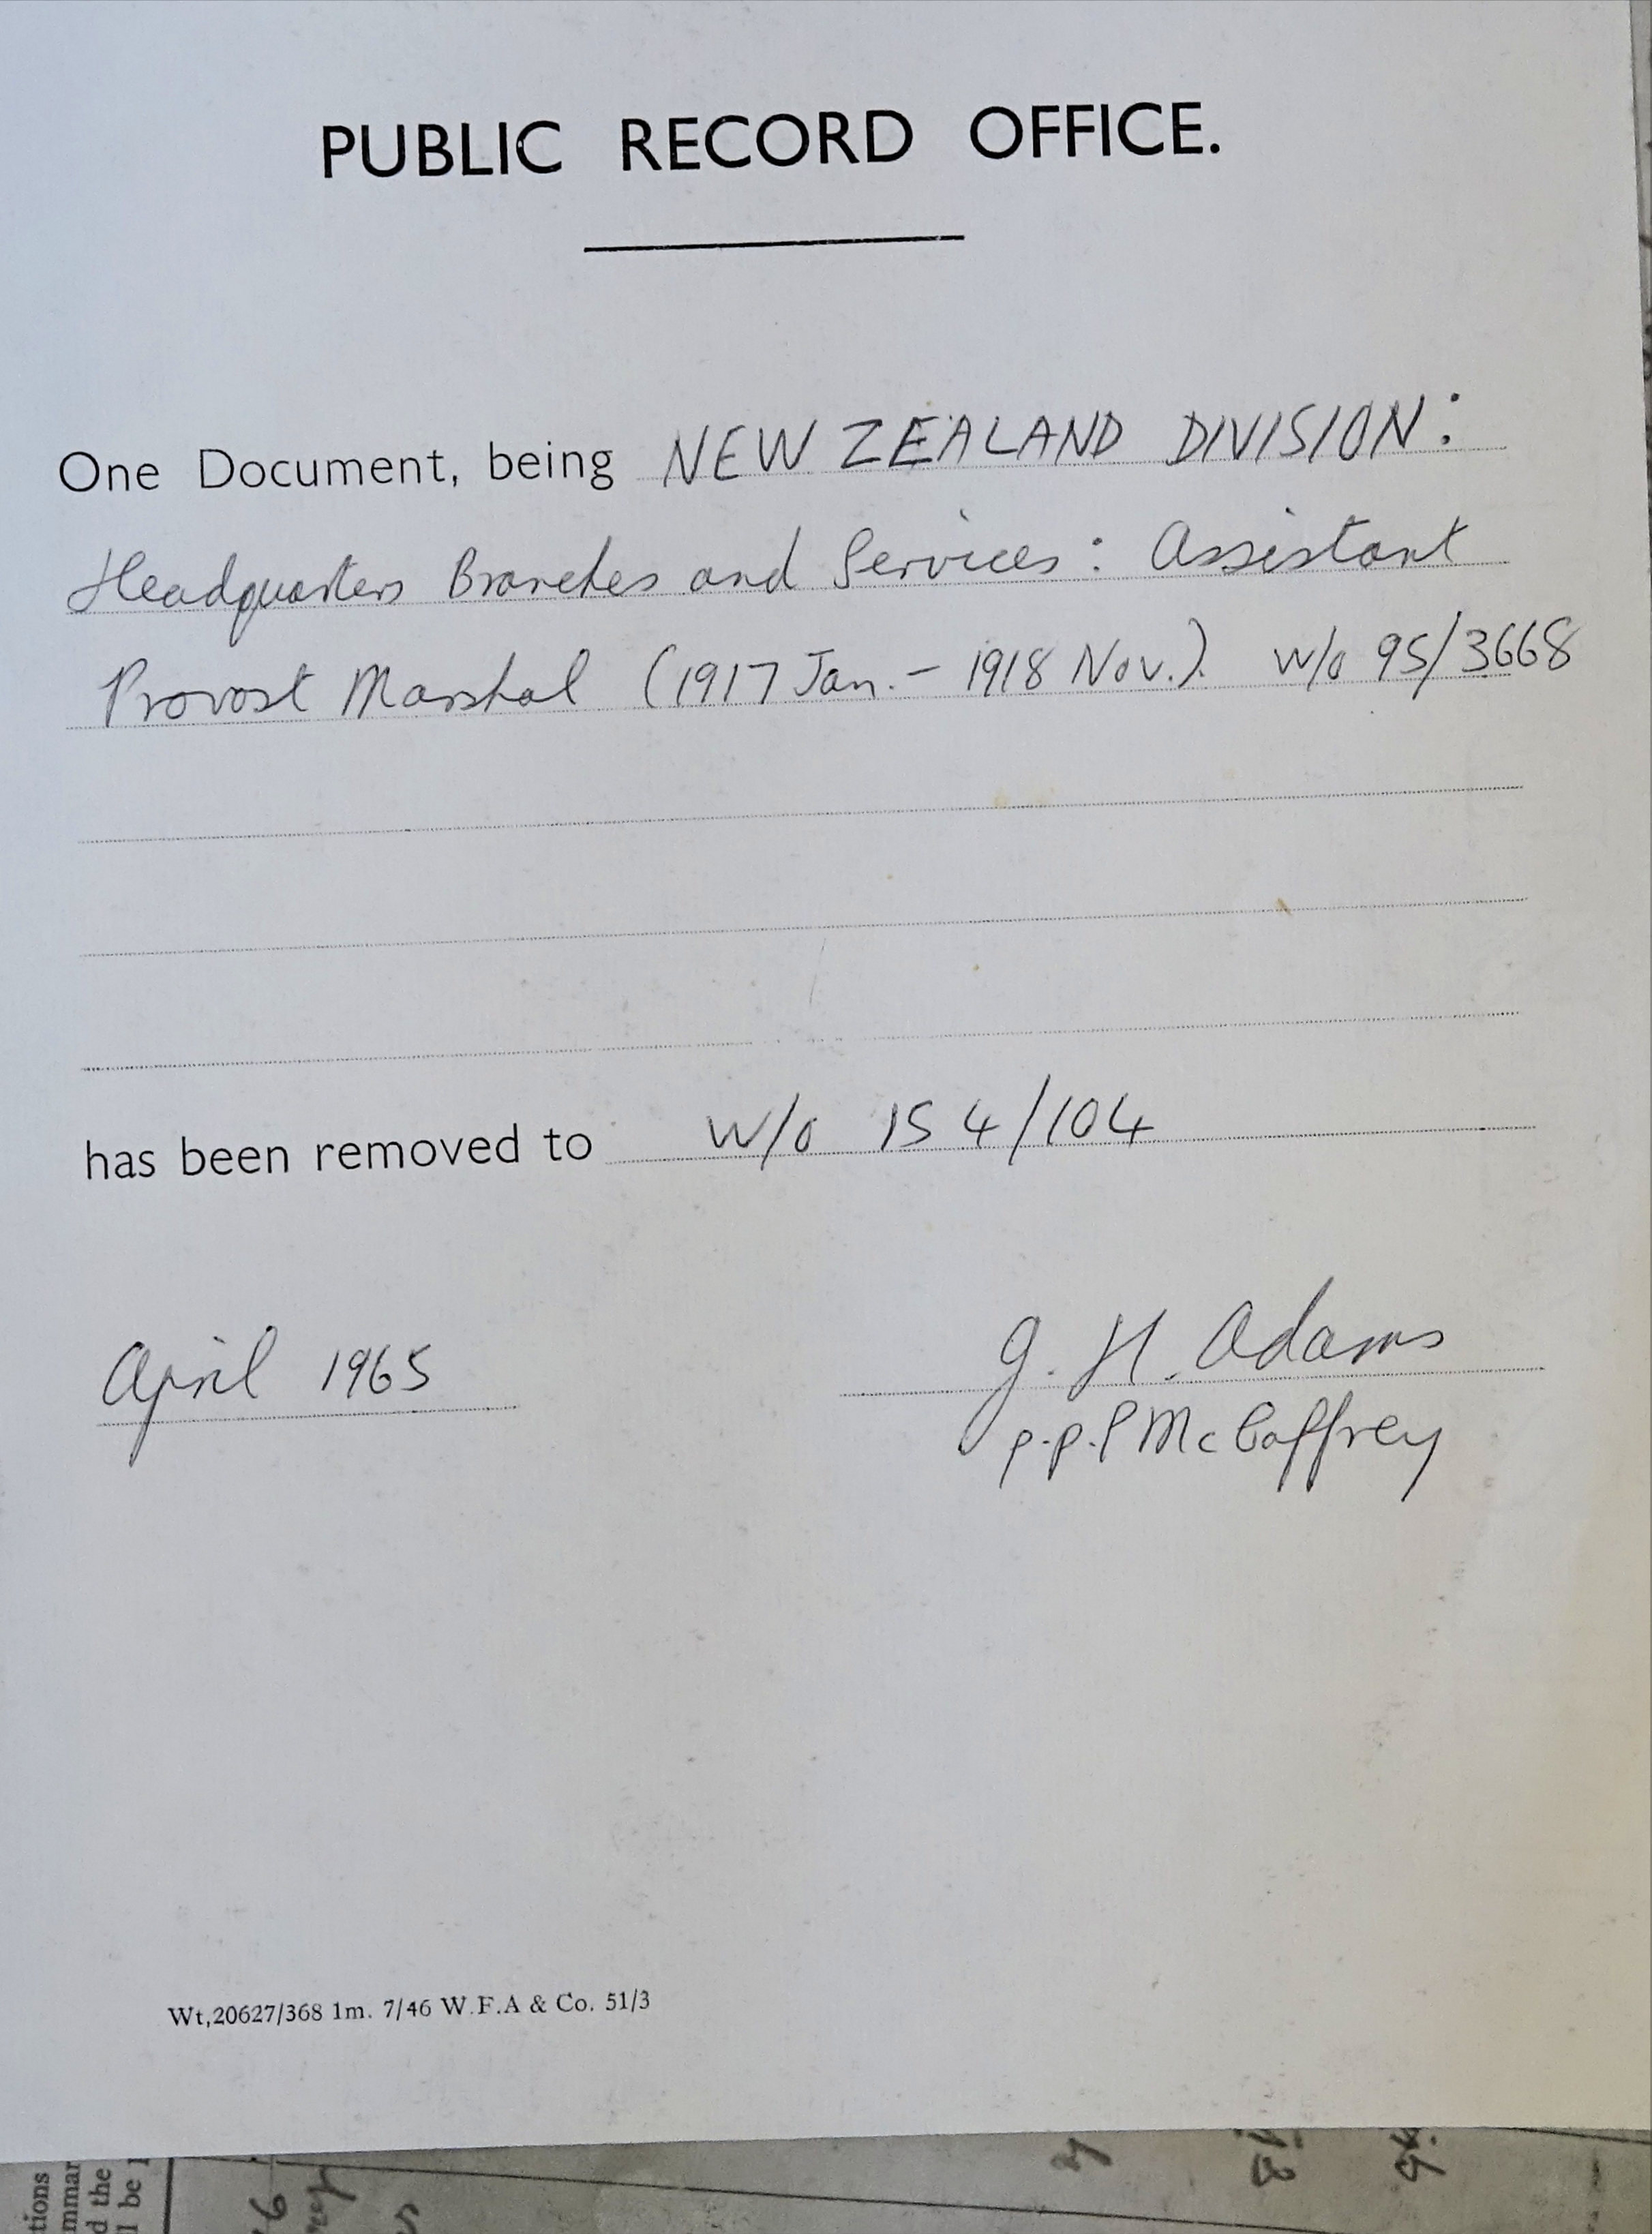 PUBLIC RECORD OFFICE.
One Document, being NEW ZEALAND DIVISION:
Headquarters Branches and Services: Assistant
Provost Marshal (1917 Jan. – 1918 Nov.). W/o 95/3668
has been removed to W/o 154/104
April 1965
G. H. Adams
p.p. P McCaffrey
Wt,20627/368 1m. 7/46 W.F.A & Co. 51/3
d the
l be